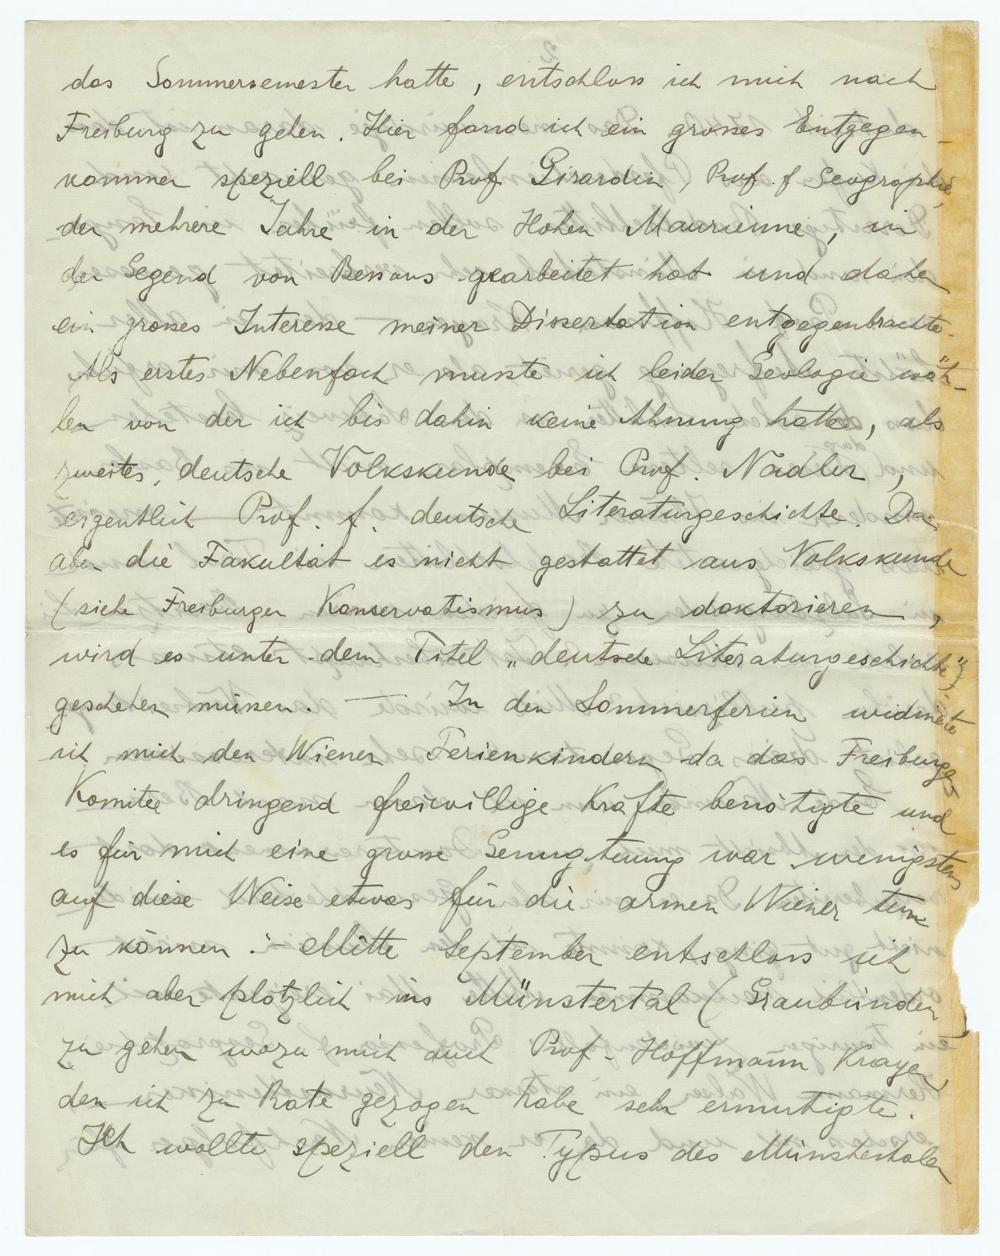 das Sommersemester hatte, entschloss ich mich nach
Freiburg zu gehen. Hier fand ich ein grosses Entgegen-
kommen speziell bei Prof. Girardin, Prof. f. Geographie,
der mehrere Jahre in der Hohen Maurienne, in
der Gegend von Bessans gearbeitet hat und daher
ein grosses Interesse meiner Dissertation entgegenbrachte.
Als erstes Nebenfach musste ich leider Geologie wäh-
len von der ich bis dahin keine Ahnung hatte, als
zweites, deutsche Volkskunde bei Prof. Nadler,
eigentlich Prof. f. deutsche Literaturgeschichte. Da
aber die Fakultät es nicht gestattet aus Volkskunde
(siehe Freiburger Konservatismus) zu doktorieren,
wird es unter dem Titel „deutsche Literaturgeschichte"
geschehen müssen. — In den Sommerferien widmete
ich mich den Wiener Ferienkindern da das Freiburger
Komitee dringend freiwillige Kräfte benötigte und
es für mich eine grosse Genugtuung war wenigstens
auf diese Weise etwas für die armen Wiener tun
zu können. - Mitte September entschloss ich
mich aber plötzlich ins Münstertal (Graubünden)
zu gehen wozu mich auch Prof. Hoffmann Krayer
den ich zu Rate gezogen habe sehr ermutigte.
Ich wollte speziell den Typus des Münstertaler